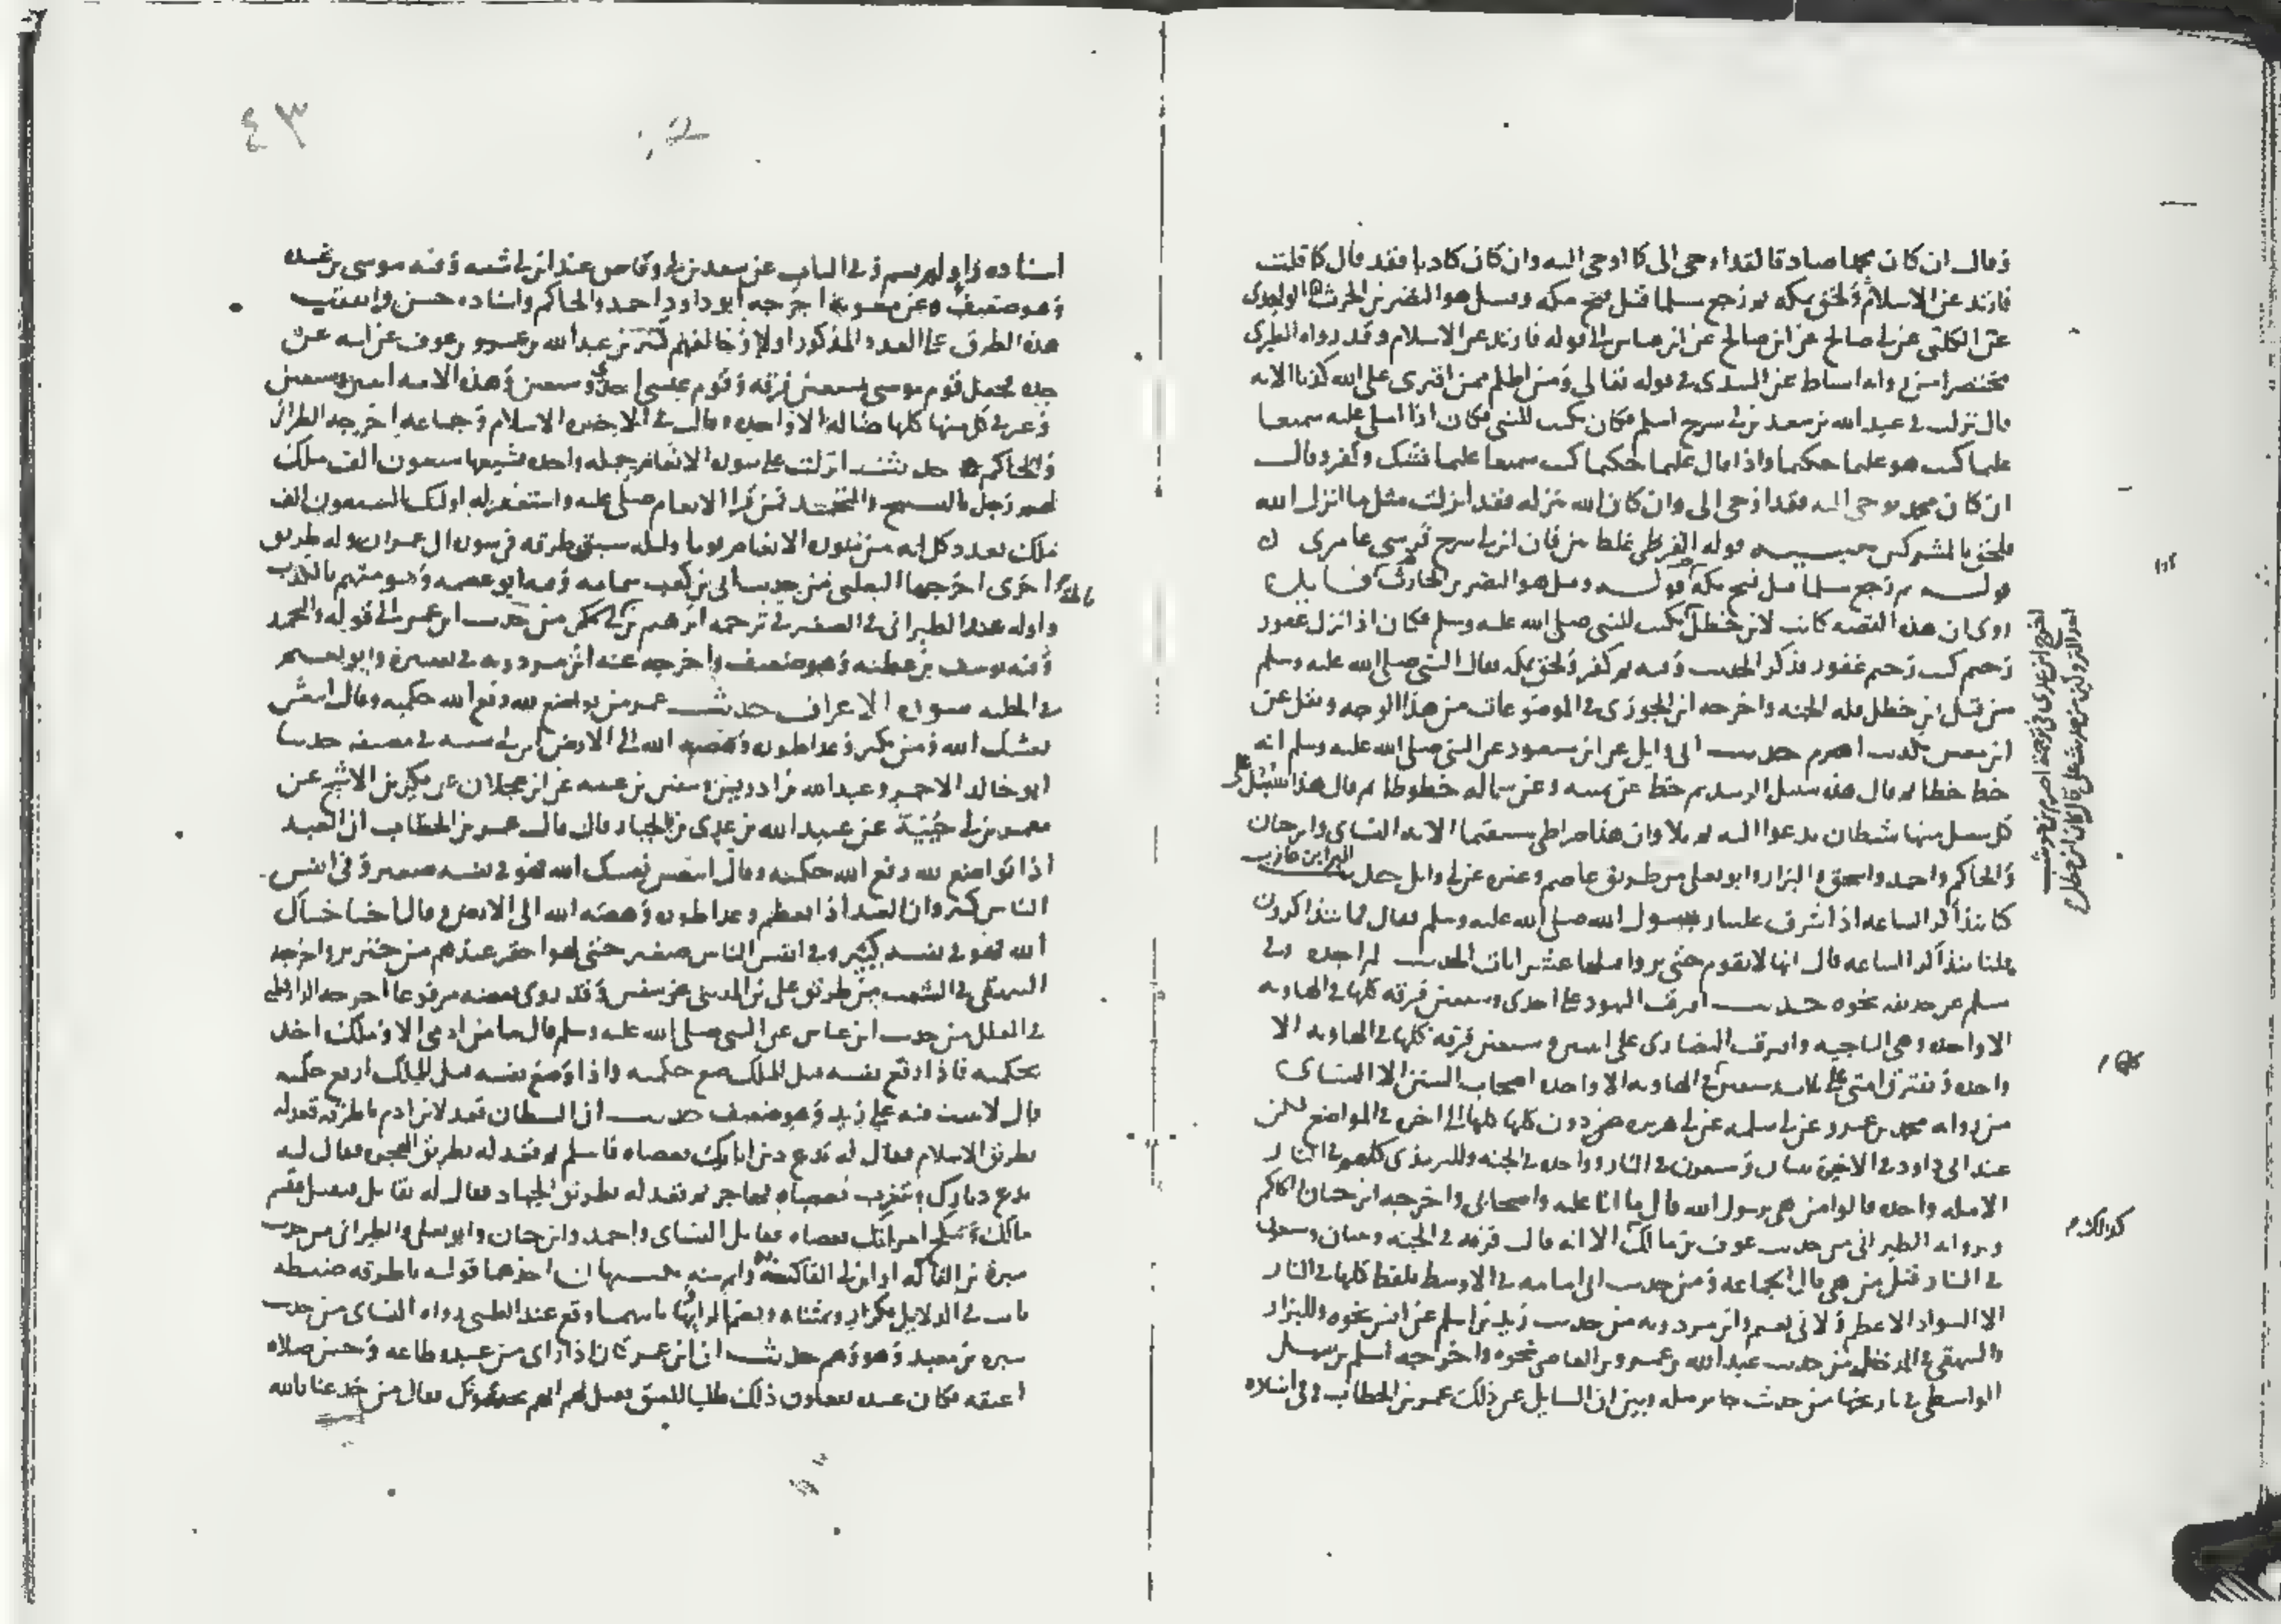 وقال ان كان محمدا صادقا لقد اوحي الي كما اوحي اليه وان كان كاذبا فقد قال كما قلت
فارتد عن الاسلام ولحق بمكه ثم رجع مسلما قبل فتح مكه وقيل هو النضر بن الحرث الواحدي
عن الكلبي عن ابي صالح عن ابن عباس الي قوله فارتد عن الاسلام وقد رواه الطبري
مختصرا من رواه اسباط عن السدي في قوله تعالي ومن اظلم ممن افتري علي الله كذبا الايه
قال نزلت في عبد الله بن سعد بن ابي سرح اسلم فكان يكتب للنبي فكان اذا املي عليه سميعا
عليما كتب هو عليما حكيما واذا قال عليما حكيما كتب سميعا عليما فشك وكفر وقال
ان كان محمد يوحي اليه فقد اوحي الي وان كان الله ينزله فقد انزلت مثل ما انزل الله
فلحق بالمشركين تنبيه قوله القرظي غلط بين فان ابن ابي سرح قرشي عامري
قوله ثم رجع مسلما قبل فتح مكه قوله وقيل هو النضر بن الحارث
روي ان هذه القصه كانت لابن خطل كان يكتب للنبي صلي الله عليه وسلم فكان اذا نزل غفور
رحيم كتب رحيم غفور فذكر الحديث وفيه ثم كفر ولحق بمكه فقال النبي صلي الله عليه وسلم
من قتل ابن خطل فله الجنه واخرجه ابن الجوزي في الموضوعات من هذا الوجه ونقل عن
ابن معين تكذيب اصرم حديث ابي وايل عن ابن مسعود عن النبي صلي الله عليه وسلم انه
خط خطا ثم قال هذه سبيل الرشد ثم خط عن يمينه وعن شماله خطوطا ثم قال هذا سبل علي
كل سبيل منها شيطان يدعوا اليه ثم تلا وان هذا صراطي مستقيما الايه النساي وابن حبان
والحاكم واحمد واسحق والبزار وابو يعلي من طريق عاصم وغيره عن ابي وايل حديث البرا بن عازب
كنا نتذاكر الساعه اذ اشرف علينا رسول الله صلي الله عليه وسلم فقال ما تتذاكرون
قلنا نتذاكر الساعه قال انها لا تقوم حتي تروا قبلها عشر ايات الحديث لم اجده وفي
مسلم عن حذيفه نحوه حديث افترقت اليهود علي احدي وسبعين فرقه كلها في الهاويه
الا واحده وهي الناجيه وافترقت النصاري علي اثنين وسبعين فرقه كلها في الهاويه الا
واحده وتفترق امتي علي ثلاث وسبعين في الهاويه الا واحده اصحاب السنن الا النساي
من رواه محمد بن عمرو عن ابي سلمه عن ابي هريره دون كلها الي اخره في المواضع لكن
عند ابي داود في الاخيره ثنتان وسبعون في النار وواحده في الجنه وللترمذي كلهم في النار
الا مله واحده قالوا من هي يرسول الله قال ما انا عليه واصحابي واخرجه ابن حبان الحاكم
ورواه الطبراني من حديث عوف بن مالك الا انه قال فرقه في الجنه وثنتان وسبعون
في النار قيل من هي قال الجماعه ومن حديث ابي امامه في الاوسط بلفظ كلها في النار
الا السواد الاعظم ولابي نعيم وابن مردويه من حديث زيد بن اسلم عن انس نحوه وللبزار
والبيهقي في المدخل من حديث عبد الله بن عمرو بن العاصي نحوه واخرجه اسلم بن سهل
الواسطي في تاريخها من حديث جابر مثله وبين ان السايل عن ذلك عمر بن الخطاب وفي اسناده
اخرج ابن عدي في ترجمه اصرم بن حوشب
احد المتروكين من حديث علي قال كان ابن خطل
٤٣
اسناده راو لم يسم وفي الباب عن سعد بن ابي وقاص عند ابن ابي شيبه وفيه موسي بن عبيده
وهو ضعيف وعن معويه اخرجه ابو داود واحمد والحاكم واسناده حسن واتفقت
هذه الطرق علي العدد المذكور اولا وخالفهم كثير بن عبد الله بن عمرو بن عوف عن ابيه عن
جده فجعل قوم موسي سبعين فرقه وقوم عيسي احدي وسبعين وهذه الامه اثنين وسبعين
كل منها كلها ضاله الا واحده وقال في الاخيره الاسلام وجماعه اخرجه الطبراني
والحاكم حديث انزلت علي سوره الانعام جمله واحده شيعها سبعون الف ملك
لهم زجل بالتسبيح والتحميد فمن قرا الانعام صلي عليه واستغفر له اولئك السبعون الف
ملك بعدد كل ايه من سوره الانعام يوما وليله سبق طرقه في سوره ال عمران وله طريق
اخري اخرجها الثعلبي من حديث ابي بن كعب بتمامه وفيه ابو عصمه وهو متهم بالكذب
واوله عند الطبراني في الصغير في ترجمه ابرهيم من حديث ابن عمر الي قوله والحمد
وفيه يوسف بن عطيه وهو ضعيف واخرجه عنه ابن مردويه في تفسيره وابو نعيم
في الحليه سوره الاعراف حديث عمر من تواضع لله رفع الله حكمته وقال انتعش
نعشك الله ومن تكبر وعدا طوره وهصه الله الي الارض ابن ابي شيبه في مصنفه حدثنا
ابو خالد الاحمر وعبد الله بن ادريس وسفين بن عيينه عن ابن عجلان عن بكير بن الاشج عن
معمر بن ابي حبيبة عن عبيد الله بن عدي بن الخيار قال قال عمر بن الخطاب ان العبد
اذا تواضع لله رفع الله حكمته وقال انتعش نعشك الله فهو في نفسه صغير وفي انفس
الناس كبير وان العبد اذا تعظم وعدا طوره وهصه الله الي الارض وقال اخسا خساك
الله فهو في نفسه كبير وفي انفس الناس صغير حتي لهو احقر عندهم من خنزير واخرجه
البيهقي في الشعب من طريق علي بن المديني عن سفين وقد روي بعضه مرفوعا اخرجه الدارقطني
في العلل من حديث ابن عباس عن النبي صلي الله عليه وسلم قال ما من ادمي الا وملك اخذ
بحكمته فاذا رفع نفسه قيل للملك ضع حكمته واذا وضع نفسه قيل للملك ارفع حكمته
قال لا يثبت فيه علي بن زيد وهو ضعيف حديث ان الشيطان قعد لابن ادم باطرقه قعد له
بطريق الاسلام فقال له تدع دين ابايك فعصاه فاسلم ثم قعد له بطريق الهجره فقال له
تدع ديارك وتتغرب فعصاه فهاجر ثم قعد له بطريق الجهاد فقال له تقاتل فتقتل فيقسم
مالك وتنكح امراتك فعصاه فقاتل النساي واحمد وابن حبان وابو يعلي والطبراني من حديث
سبرة بن الفاكه او ابن ابي الفاكهه احدهما قوله باطرقه ضبطه
ثابت في الدلايل وقع عند الطيبي رواه النساي من حديث
سبره بن معبد وهو وهم حديث ان ابن عمر كان اذا راي من عبده طاعه وحسن صلاه
اعتقه فكان عبيده يفعلون ذلك طلبا للعتق فقيل له انهم يخدعونك فقال من خدعنا بالله